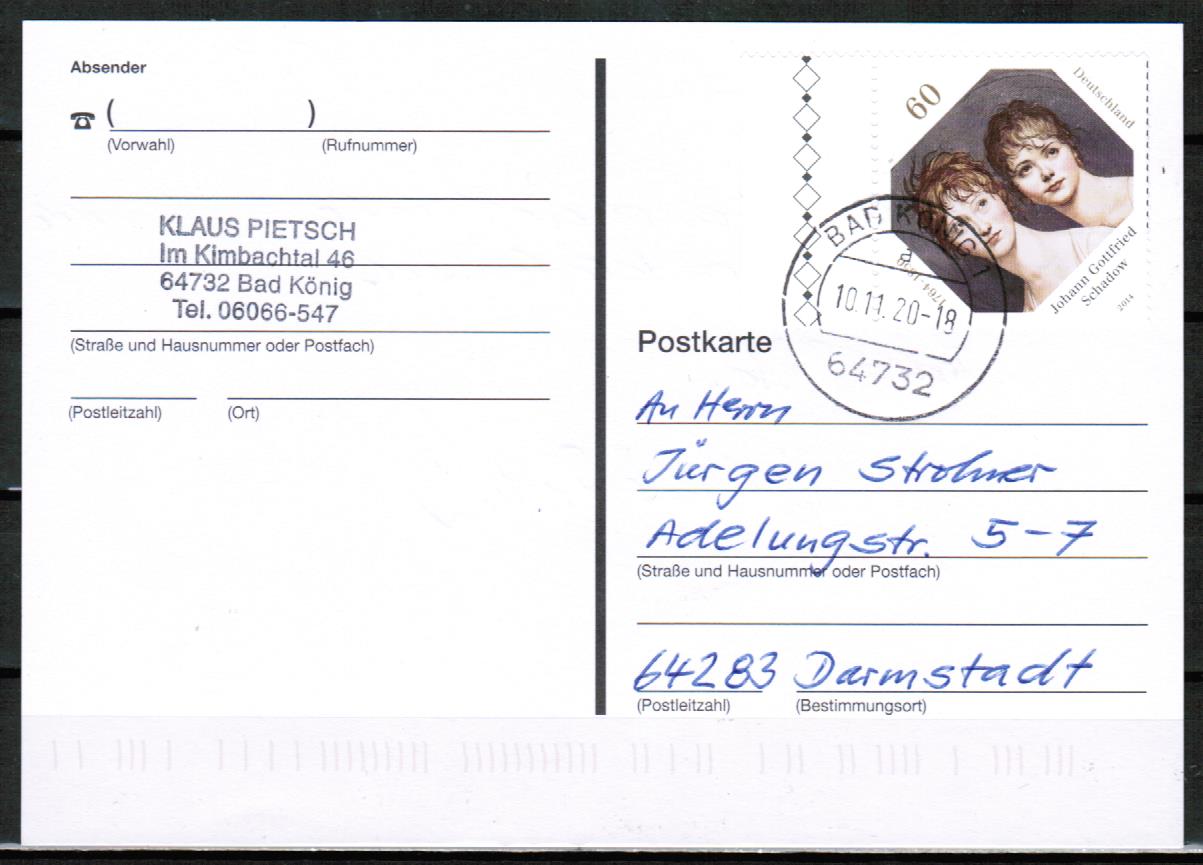 Absender
( )
(Vorwahl) (Rufnummer)
KLAUS PIETSCH
Im Kimbachtal 46
64732 Bad König
Tel. 06066-547
(Straße und Hausnummer oder Postfach)
(Postleitzahl) (Ort)
60
Deutschland
Johann Gottfried
Schadow
2014
1764-1850
BAD KÖNIG 1
a
10.11.20-18
64732
Postkarte
An Herrn
Jürgen Strohmer
Adelungstr. 5-7
(Straße und Hausnummer oder Postfach)
64283 Darmstadt
(Postleitzahl) (Bestimmungsort)